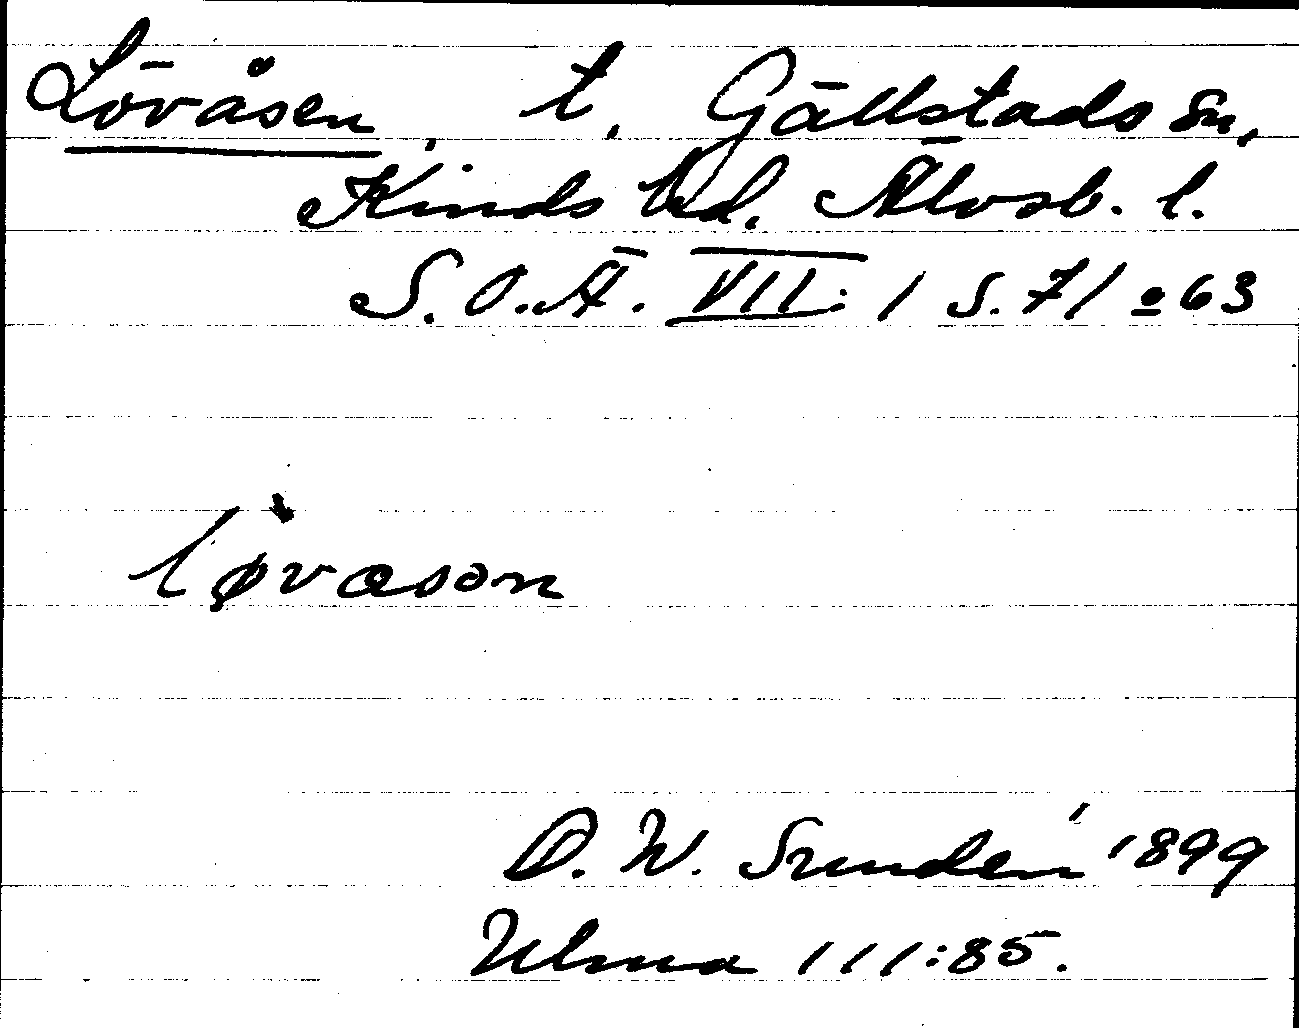 Lövåsen, t. Gällstads sn,
Kinds hd. Älvsb. l.
S.O.Ä. VII:1 s. 71 o 63
lø̀vason
D. W. Sundén 1899
Ulma 111:85.